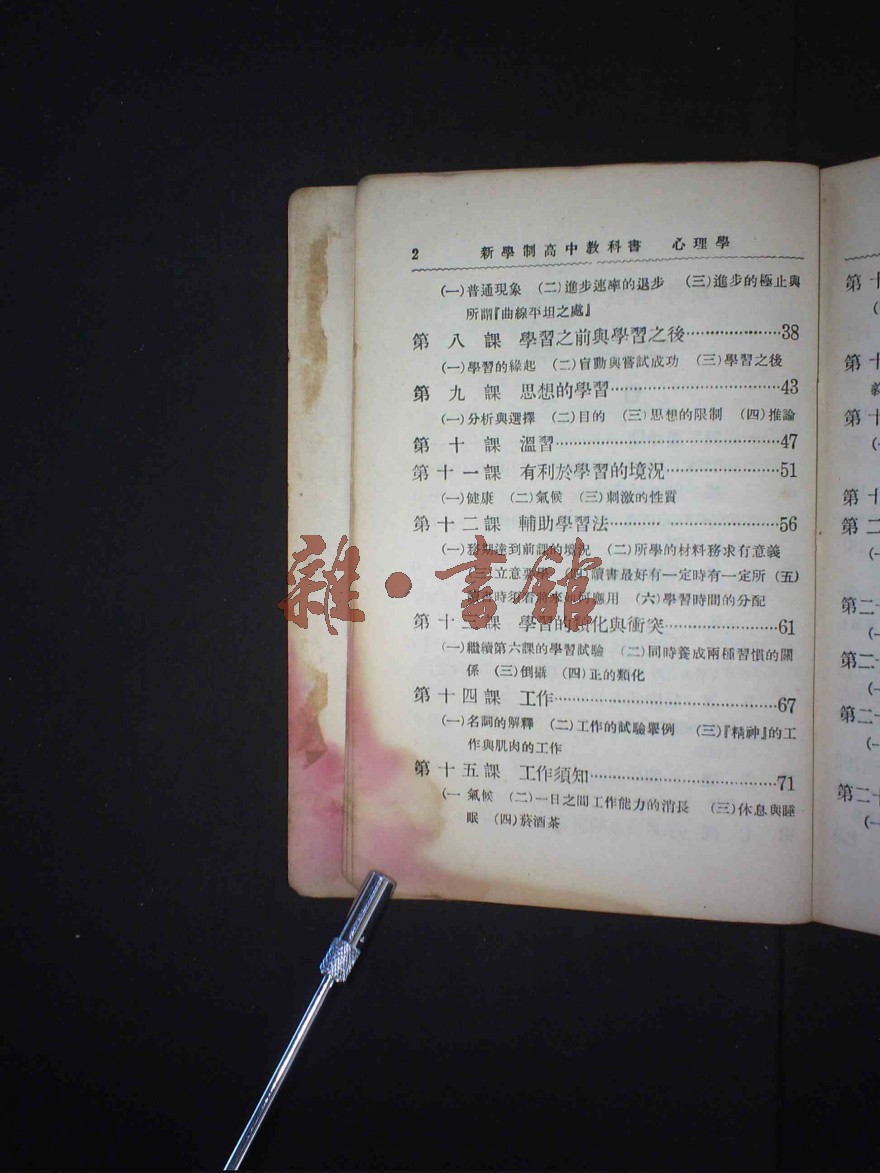 2 新學制高中教科書 心理學
(一)普通現象 (二)進步速率的退步 (三)進步的極止與
所謂『曲線平坦之處』
第八課 學習之前與學習之後……38
(一)學習的緣起 (二)盲動與嘗試成功 (三)學習之後
第九課 思想的學習……43
(一)分析與選擇 (二)目的 (三)思想的限制 (四)推論
第十課 溫習……47
第十一課 有利於學習的境況……51
(一)健康 (二)氣候 (三)刺激的性質
第十二課 輔助學習法……56
(一)務期達到前課的境況 (二)所學的材料務求有意義
(三)立意要學 (四)讀書最好有一定時有一定所 (五)
應用 (六)學習時間的分配
第十三課 學習的類化與衝突……61
(一)繼續第六課的學習試驗 (二)同時養成兩種習慣的關
係 (三)倒攝 (四)正的類化
第十四課 工作……67
(一)名詞的解釋 (二)工作的試驗舉例 (三)『精神』的工
作與肌肉的工作
第十五課 工作須知……71
(一 氣候 (二)一日之間工作能力的消長 (三)休息與睡
眠 (四)菸酒茶
雜·書館
第十
第十
第十
第十
第二
第二十
第二十
第二十
第二十